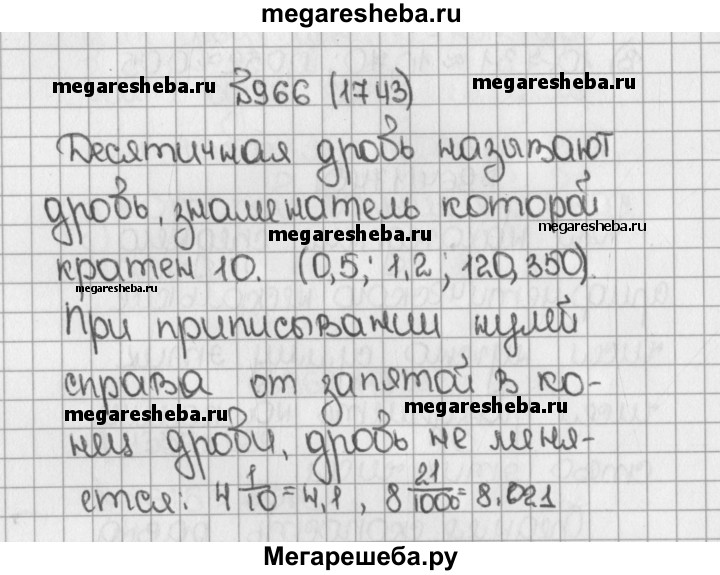 megaresheba.ru
megaresheba.ru №966 (1743) megaresheba.ru
Десятичная дробь называют
дробь, знаменатель которой
megaresheba.ru megaresheba.ru
кратен 10. (0,5; 1,2; 120,350).
megaresheba.ru
При приписывании нулей
справа от запятой в ко-
megaresheba.ru megaresheba.ru
нец дроби, дробь не меня-
ется: 4 1/10 = 4,1, 8 21/1000 = 8.021
Мегарешеба.ру